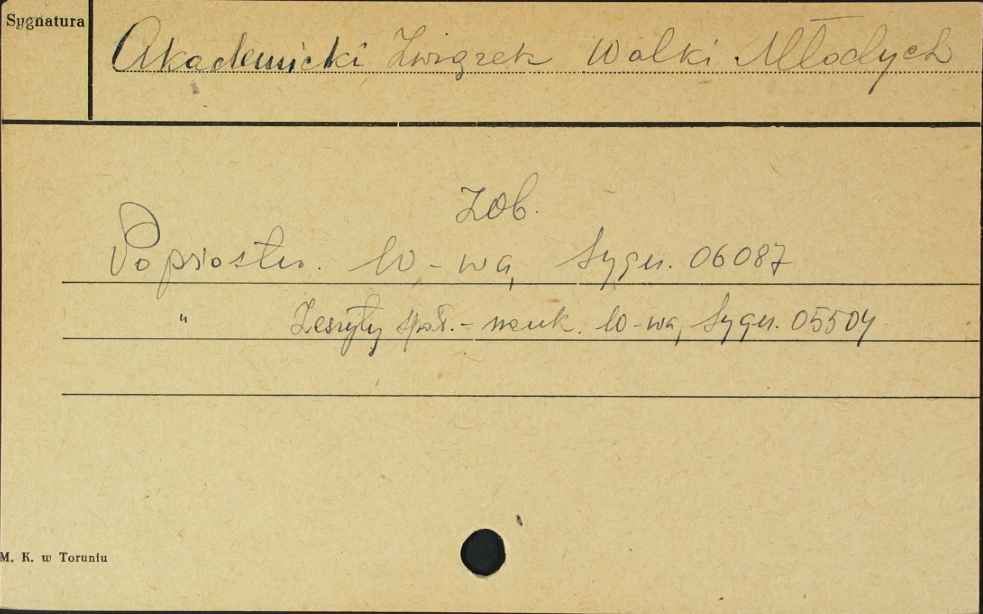 Sygnatura
Akademicki Związek Walki Młodych
Zob.
Po prostu. W-wa, Sygn. 06087
" Zeszyty społ.-nauk. W-wa, Sygn. 05504
M. K. w Toruniu